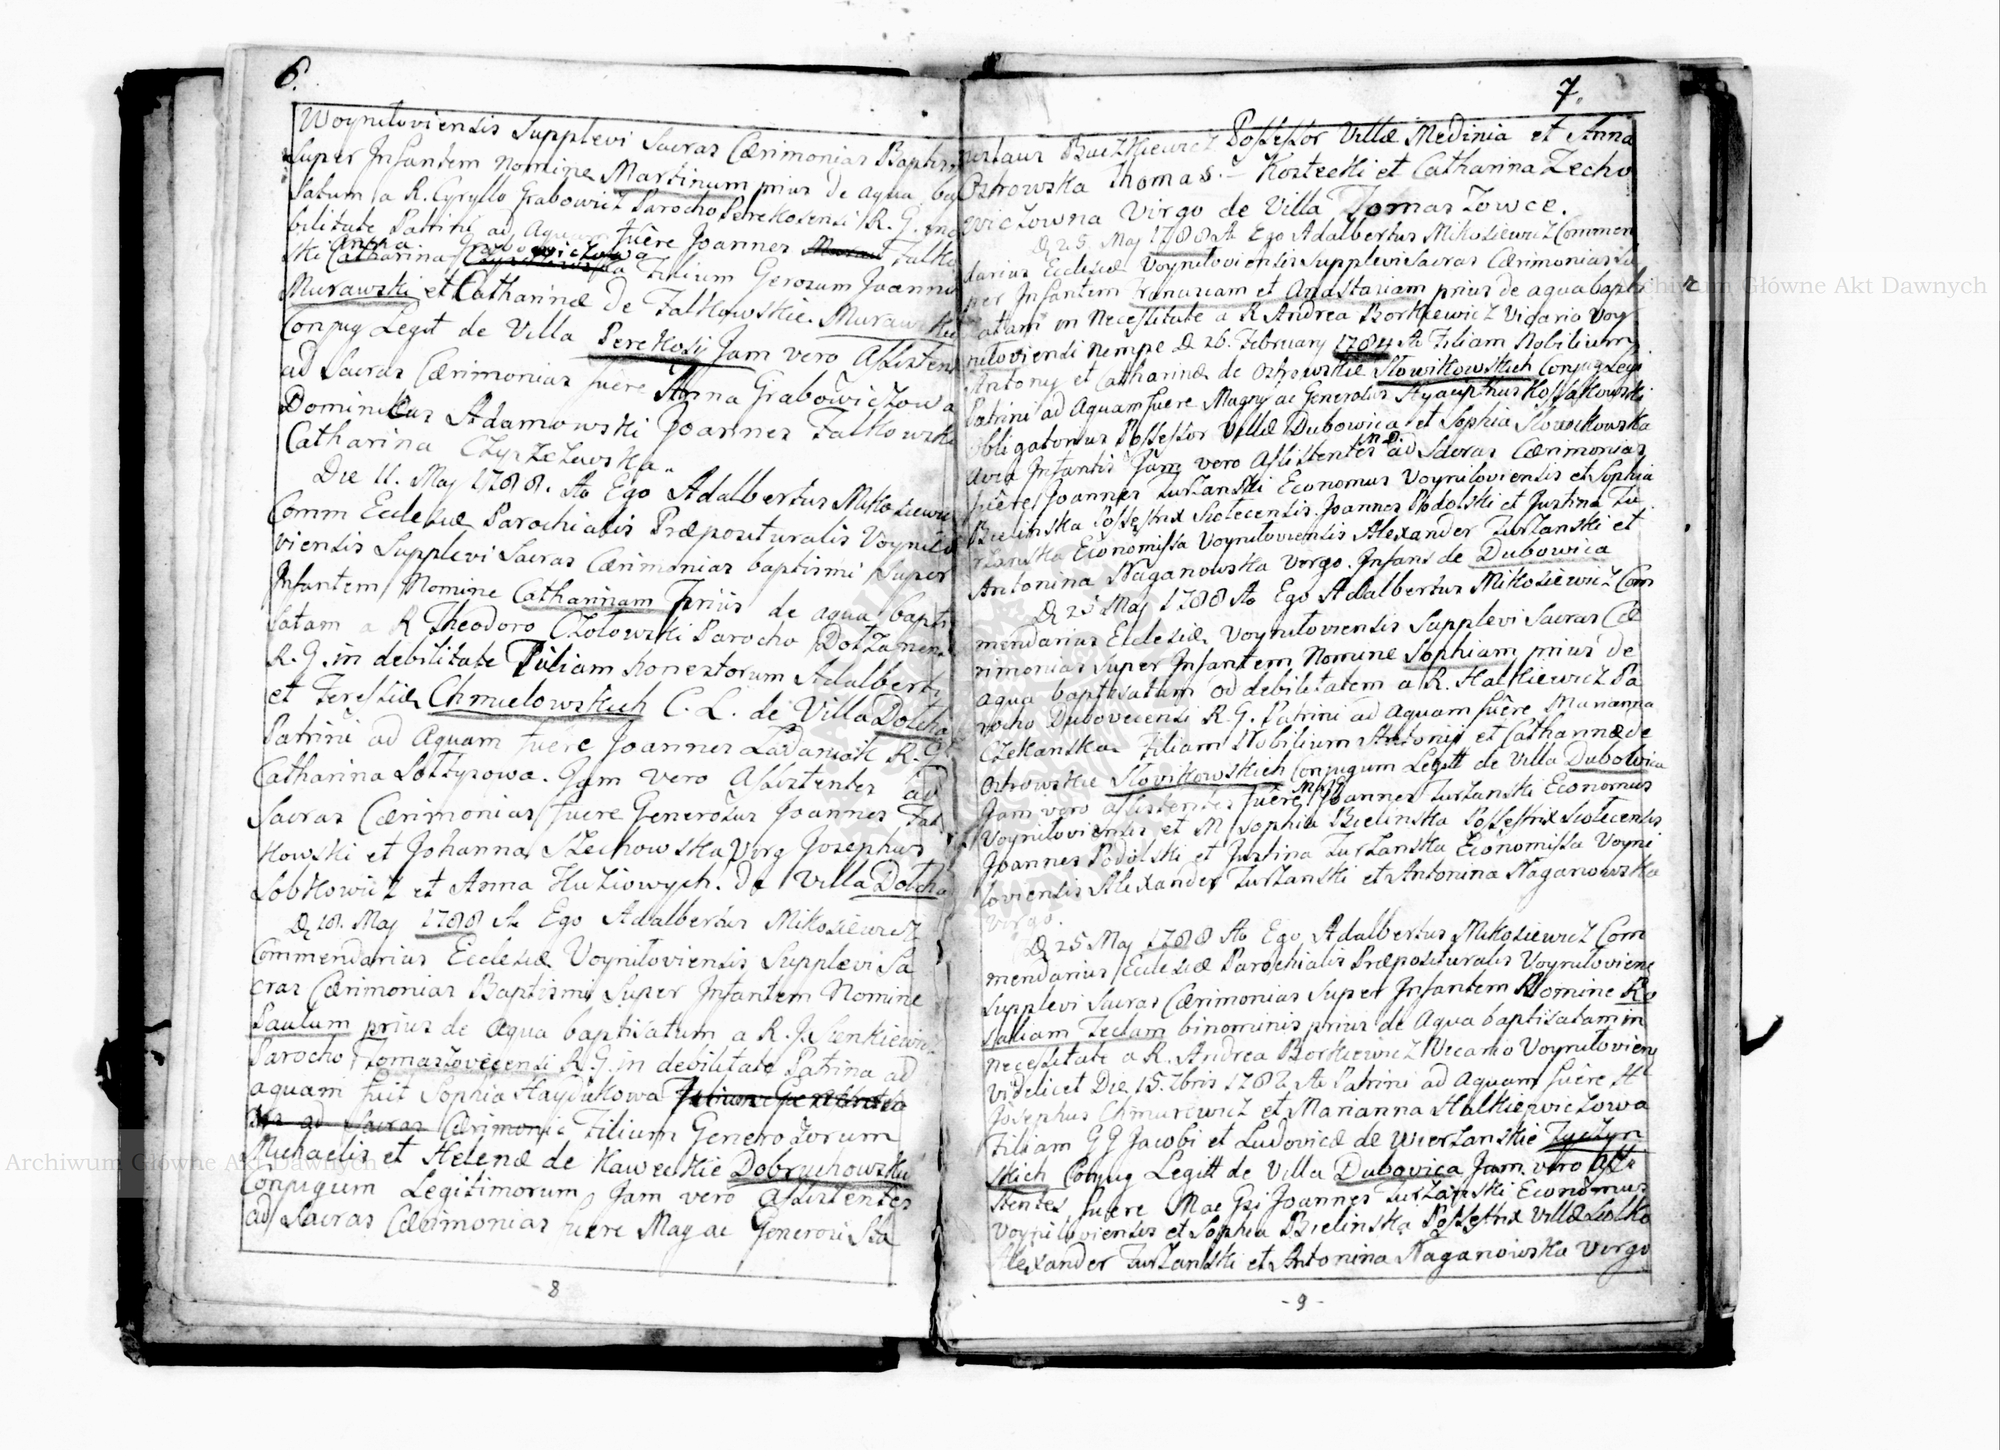 6.
Woyniloviensis Supplevi Sacras Cærimonias Baptis
Super Infantem nomine Martinum prius de aqua ba
satum a R. Cyryllo Grabowicz Parocho Perekosensi R. G. in
bilitate Patrini ad Aquam fuêre Joannes Falko
ski Anna Grabowiczowa Filium Gerosum Joannis
Murawski et Catharinæ de Falkowskie Murawskie
Conjug Legit de Villa Perekosy Jam vero Assisten
ad Sacras Cærimonias fuêre Anna Grabowiczowa
Dominikus Adamowski Joannes Falkowski
Catharina
Die 11. Maj 1788. Ao Ego Adalbertus Mikosiewicz
Comm Ecclesiæ Parochialis Præposituralis Voynilo
viensis Supplevi Sacras Cærimonias baptismi Super
Infantem Nomine Catharinam prius de aqua bapti
satam a R Theodoro Czolowski Parocho
R. G. in debilitate Filiam honestorum Adalberti
et Teressiæ Chmielowskich C. L. de Villa Dolcha
Patrini ad Aquam fuêre Joannes Ladaniak R. G.
Catharina Lottysowa. Jam vero Assistentes ad
Sacras Cærimonias fuere Generosus Joannes Fal
kowski et Johanna Szechowska Virg Josephus
Lobkowicz et Anna Huziowych. de Villa Dolcha
D 18. Maj 1788 Ao Ego Adalbertus Mikosiewicz
Commendarius Ecclesiæ Voyniloviensis Supplevi Sa
cras Cærimonias Baptismi Super Infantem Nomine
Paulum prius de Aqua baptisatum a R. J. Sienkiewicz
Parocho Tomaszovecensi R. G. in debilitate Patrina ad
aquam fuit Sophia Haydukowa
ad Sacras Cærimonie Filium Generozorum
Michaelis et Helenæ de Kaweckie Dobrychowskie
Conjugum Legitimorum Jam vero Assistentes
ad Sacras Cærimonias fuere Mag ac Generosi Sta
- 8
7.
nislaus Buczkiewicz Possessor Villæ Medinia et Anna
Ostrowska Thomas - Kostecki et Catharina Zecho
viczowna Virgo de Villa Tomaszowce.
D 25. Maj 1788 Ao Ego Adalbertus Mikosiewicz Commen
darius Ecclesiæ Voyniloviensis Supplevi Sacras Cærimonias Su
per Infantem et Anastasiam prius de aqua bapti
satam in Necessitate a R Andrea Borkiewicz Vicario Voy
niloviensi nempe D 26. February 1784 Ao Filiam Nobilium
Antony et Catharinæ de Ostrowskie Slowikowskich Conjug Legi
Patrini ad Aquam fuere Magny ac Generosus Hyacinthus Kossakowski
Obligatorius Possessor Villæ Dubowica et Sophia Slowikowska
Avia Infantis Jam vero Assistentes ad Sacras Cærimonias
fuêre Joannes Turzanski Economus Voyniloviensis et Sophia
Bielinska Possestrix Siolecensis Joannes Podolski et Justina Tu
rzanska Economissa Voyniloviensis Alexander Turzanski et
Antonina Naganowska Virgo. Infans de Dubowica
D 25 Maj 1788 Ao Ego Adalbertus Mikosiewicz Com
mendarius Ecclesiæ Voyniloviensis Supplevi Sacras Cæ
rimonias Super Infantem Nomine Sophiam prius de
aqua baptisatam ob debilitatem a R. Halkiewicz Pa
rocho Dubovecensi R. G. Patrini ad Aquam fuêre Marianna
Czekanska Filiam Nobilium Antonij et Catharinæ de
Ostrowskie Slovikowskich Conjugum Legitt de Villa Dubovica
Jam vero assistentes fuêre Joannes Turzanski Economus
Voyniloviensis et M Sophia Bielinska Possestrix Siolecensis
Joannes Podolski et Justina Turzanska Economissa Voyni
loviensis Alexander Turzanski et Antonina Naganowska
Virgo.
D 25 Maj 1788 Ao Ego Adalbertus Mikosiewicz Com
mendarius Ecclesiæ Parochialis Præposituralis Voyniloviens
Supplevi Sacras Cærimonias Super Infantem Nomine Ro
saliam Teclam binominis prius de Aqua baptisatam in
necessitate a R. Andrea Borkiewicz Vicario Voyniloviens
videlicet Die 15. 7bris 1782 Ao Patrini ad Aquam fuêre
Josephus Chmurewicz et Marianna Halkiewiczowa
Filiam GG Jacobi et Ludovicæ de Wierzanskie Tyczyn
skich Conjug Legitt de Villa Dubovica Jam vero Assi
stentes fuere Joannes Turzanski Economus
Voyniloviensis et Sophia Bielinska Possestrix Villæ Siolko
Alexander Turzanski et Antonina Naganowska Virgo
- 9 -
Archiwum Główne Akt Dawnych
Archiwum Główne Akt Dawnych